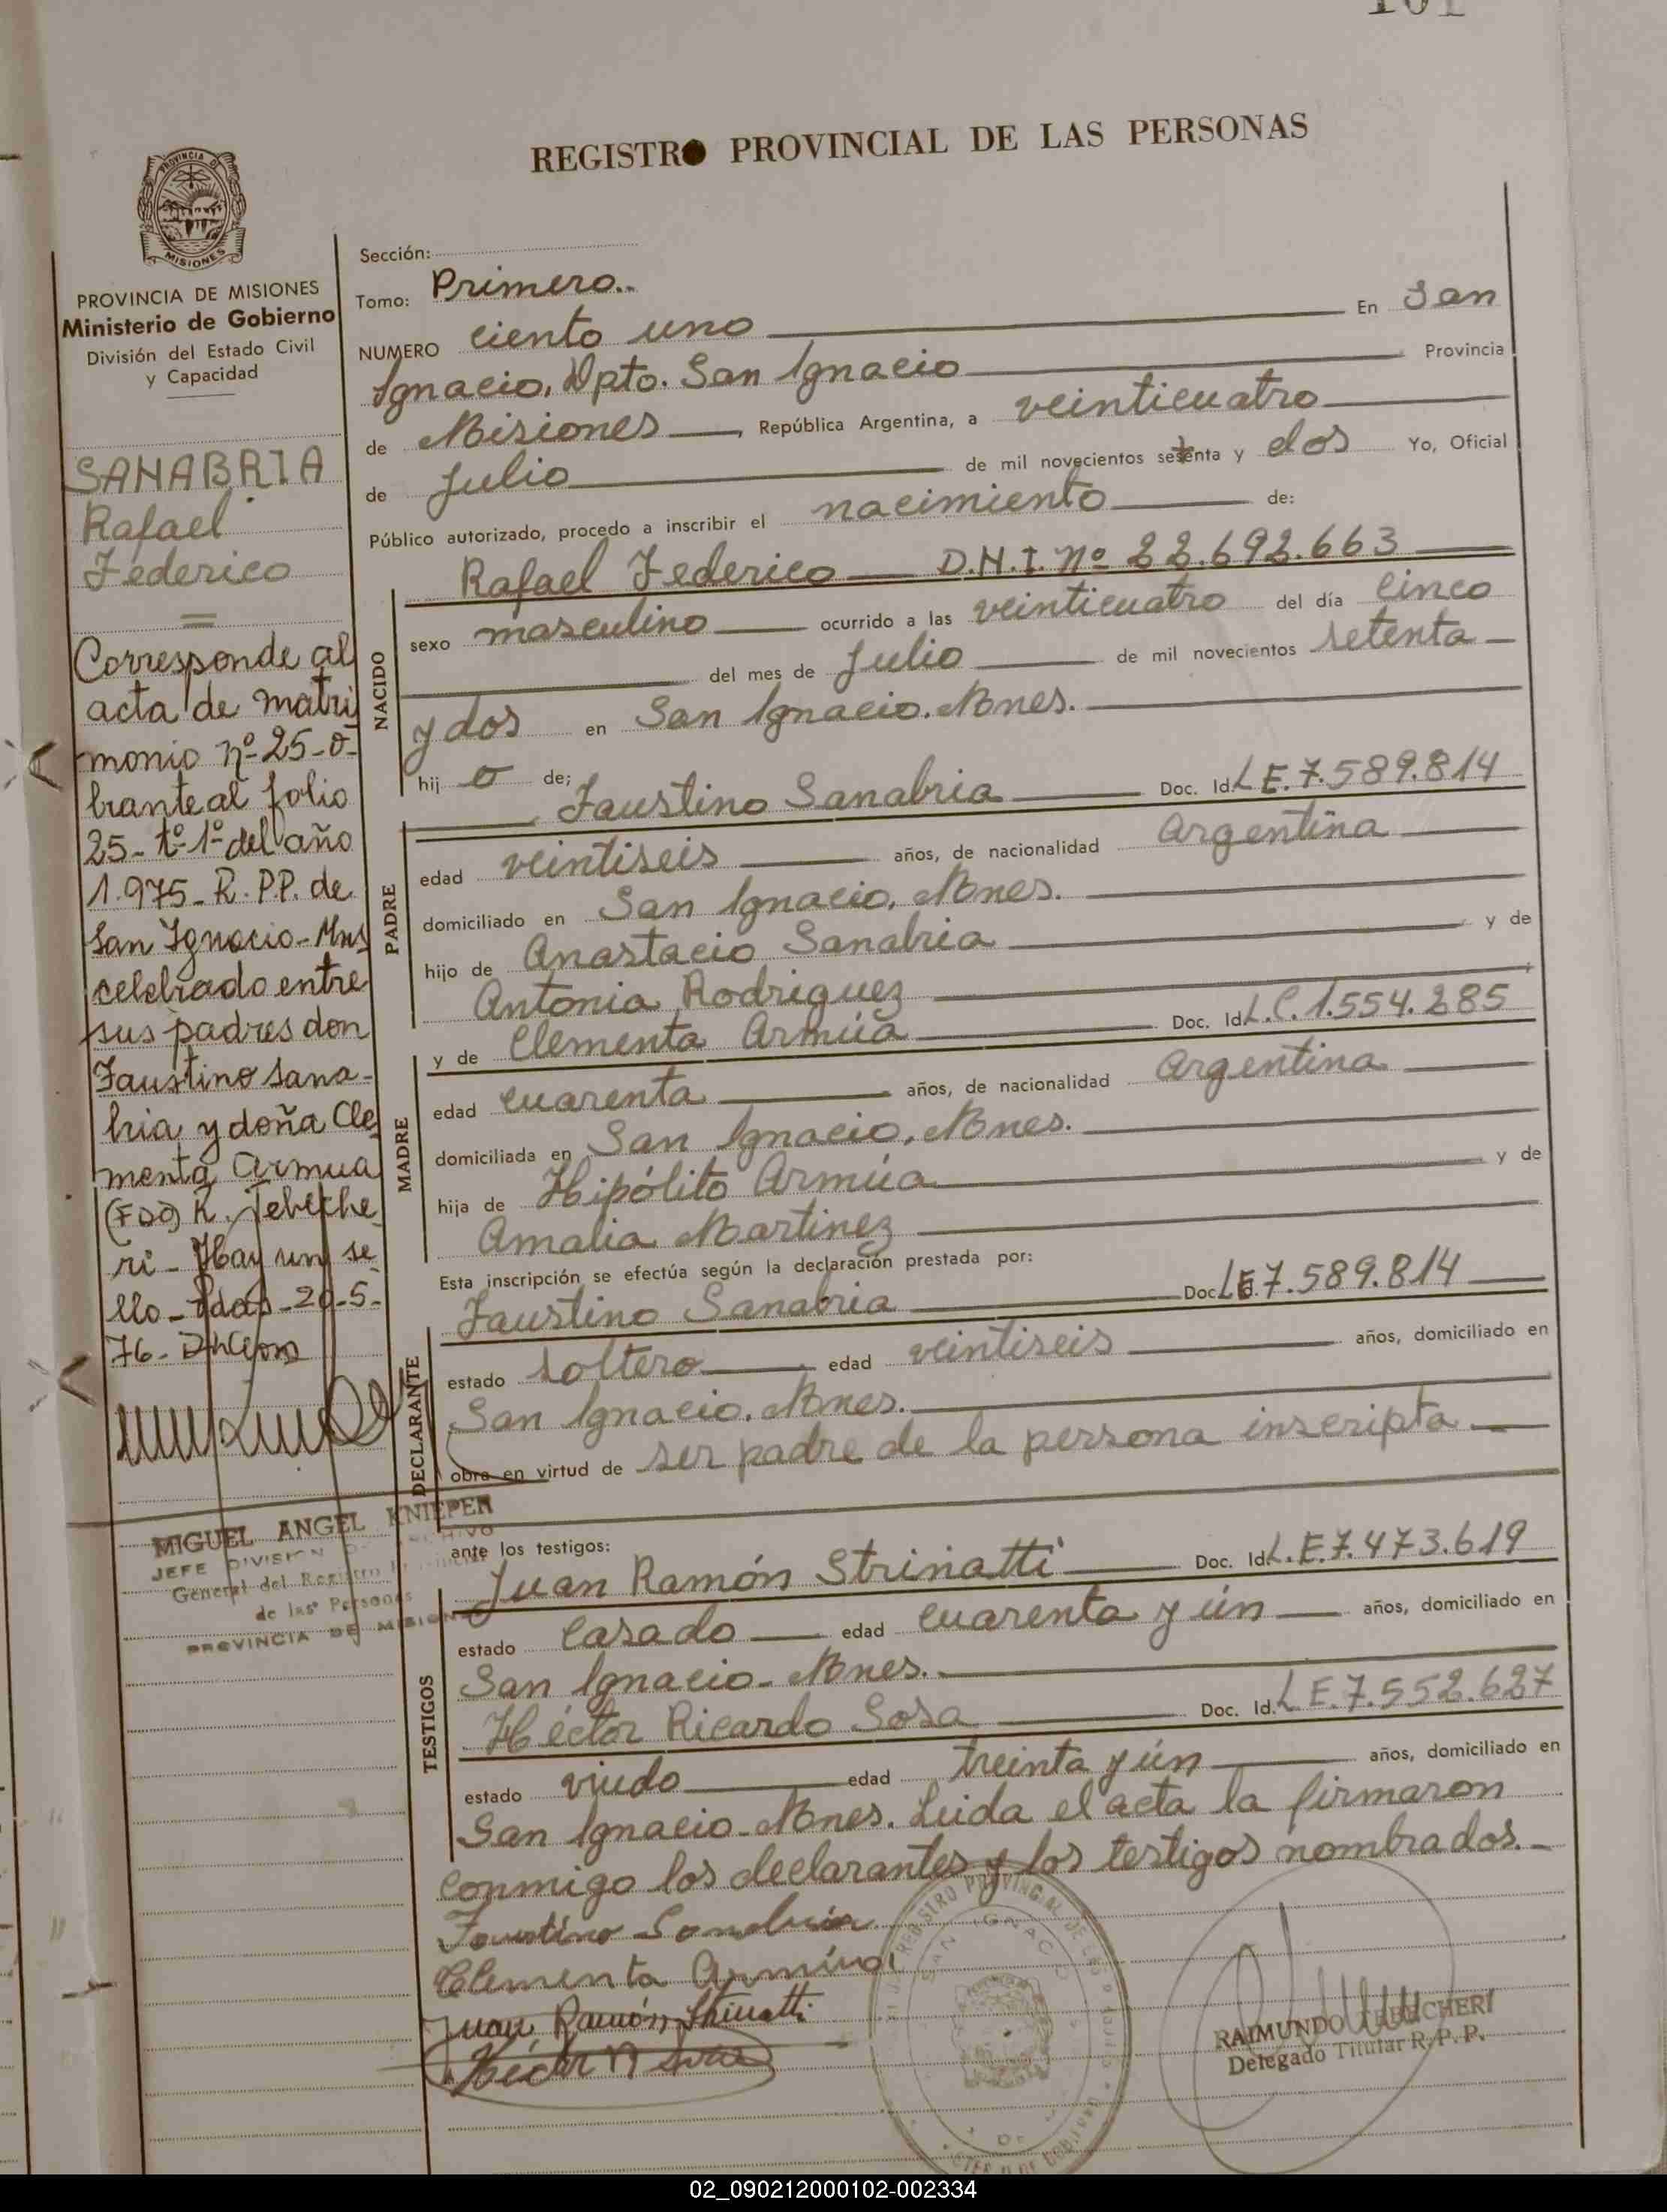 101
REGISTRO PROVINCIAL DE LAS PERSONAS
PROVINCIA DE
MISIONES
PROVINCIA DE MISIONES
Ministerio de Gobierno
División del Estado Civil
y Capacidad
SANABRIA
Rafael
Federico
Corresponde al
acta de matri
monio nº 25-o-
brante al folio
25-tº-1º del año
1.975-R.P.P. de
San Ignacio-Mns
celebrado entre
sus padres don
Faustino Sana-
bria y doña Cle
menta Armua
(Fdo) R. Tebeche
ri- Hay un se
llo- Pdas-20-5-
76-
MIGUEL ANGEL KNIEPER
JEFE DIVISION
General del Registro
de las Personas
PROVINCIA DE MISIONES
Sección:
Tomo: Primero..
NUMERO ciento uno En San
Ignacio, Dpto. San Ignacio Provincia
de Misiones, República Argentina, a veinticuatro
de Julio de mil novecientos setenta y dos Yo, Oficial
Público autorizado, procedo a inscribir el nacimiento de:
Rafael Federico D.N.I. Nº 22.692.663
NACIDO
sexo masculino ocurrido a las veinticuatro del día cinco
del mes de Julio de mil novecientos setenta
y dos en San Ignacio. Mnes.
hij o de;
Faustino Sanabria Doc. Id. L E. 7.589.814
PADRE
edad veintiseis años, de nacionalidad Argentina
domiciliado en San Ignacio, Mnes.
hijo de Anastacio Sanabria y de
Antonia Rodriguez
y de Clementa Armúa Doc. Id. L.C. 1.554.285
MADRE
edad cuarenta años, de nacionalidad Argentina
domiciliada en San Ignacio, Mnes.
hija de Hipólito Armúa y de
Amalia Martinez
Esta inscripción se efectúa según la declaración prestada por:
Faustino Sanabria Doc. LE. 7.589.814
DECLARANTE
estado soltero edad veintiseis años, domiciliado en
San Ignacio. Mnes.
obra en virtud de ser padre de la persona inscripta
ante los testigos:
Juan Ramón Strinatti Doc. Id. L.E. 7.473.619
TESTIGOS
estado casado edad cuarenta y ún años, domiciliado en
San Ignacio- Mnes.
Héctor Ricardo Sosa Doc. Id. L E. 7.552.627
estado viudo edad treinta y ún años, domiciliado en
San Ignacio-Mnes. Leida el acta la firmaron
conmigo los declarantes y los testigos nombrados.-
Faustino Sanabria
Clementa Armúa
Juan Ramón Strinatti
Héctor R Sosa
REGISTRO PROVINCIAL DE LAS
SAN IGNACIO
RAIMUNDO TEBECHERI
Delegado Titular R. P. P.
02_090212000102-002334